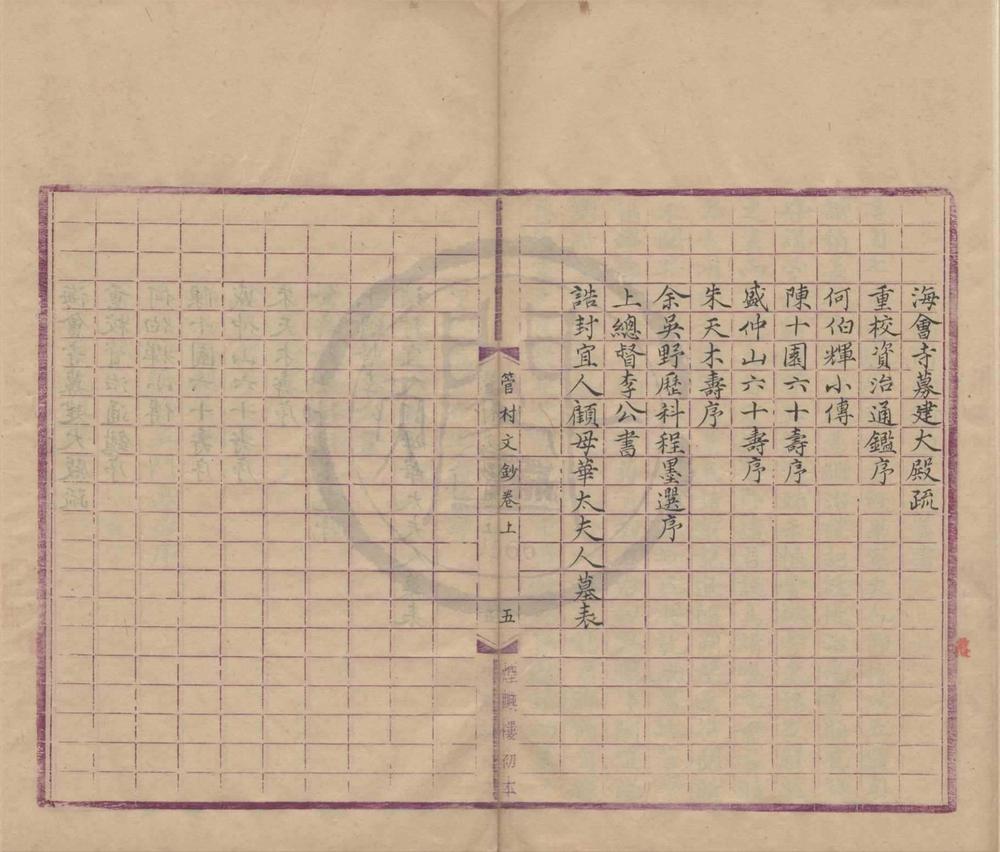 海會寺募建大殿疏
重校資治通鑑序
何伯輝小傳
陳十園六十壽序
盛仲山六十壽序
朱天木壽序
余吳野歷科程墨選序
上總督李公書
誥封宜人顧母華太夫人墓表
管村文鈔卷上 五
煙嶼樓初本